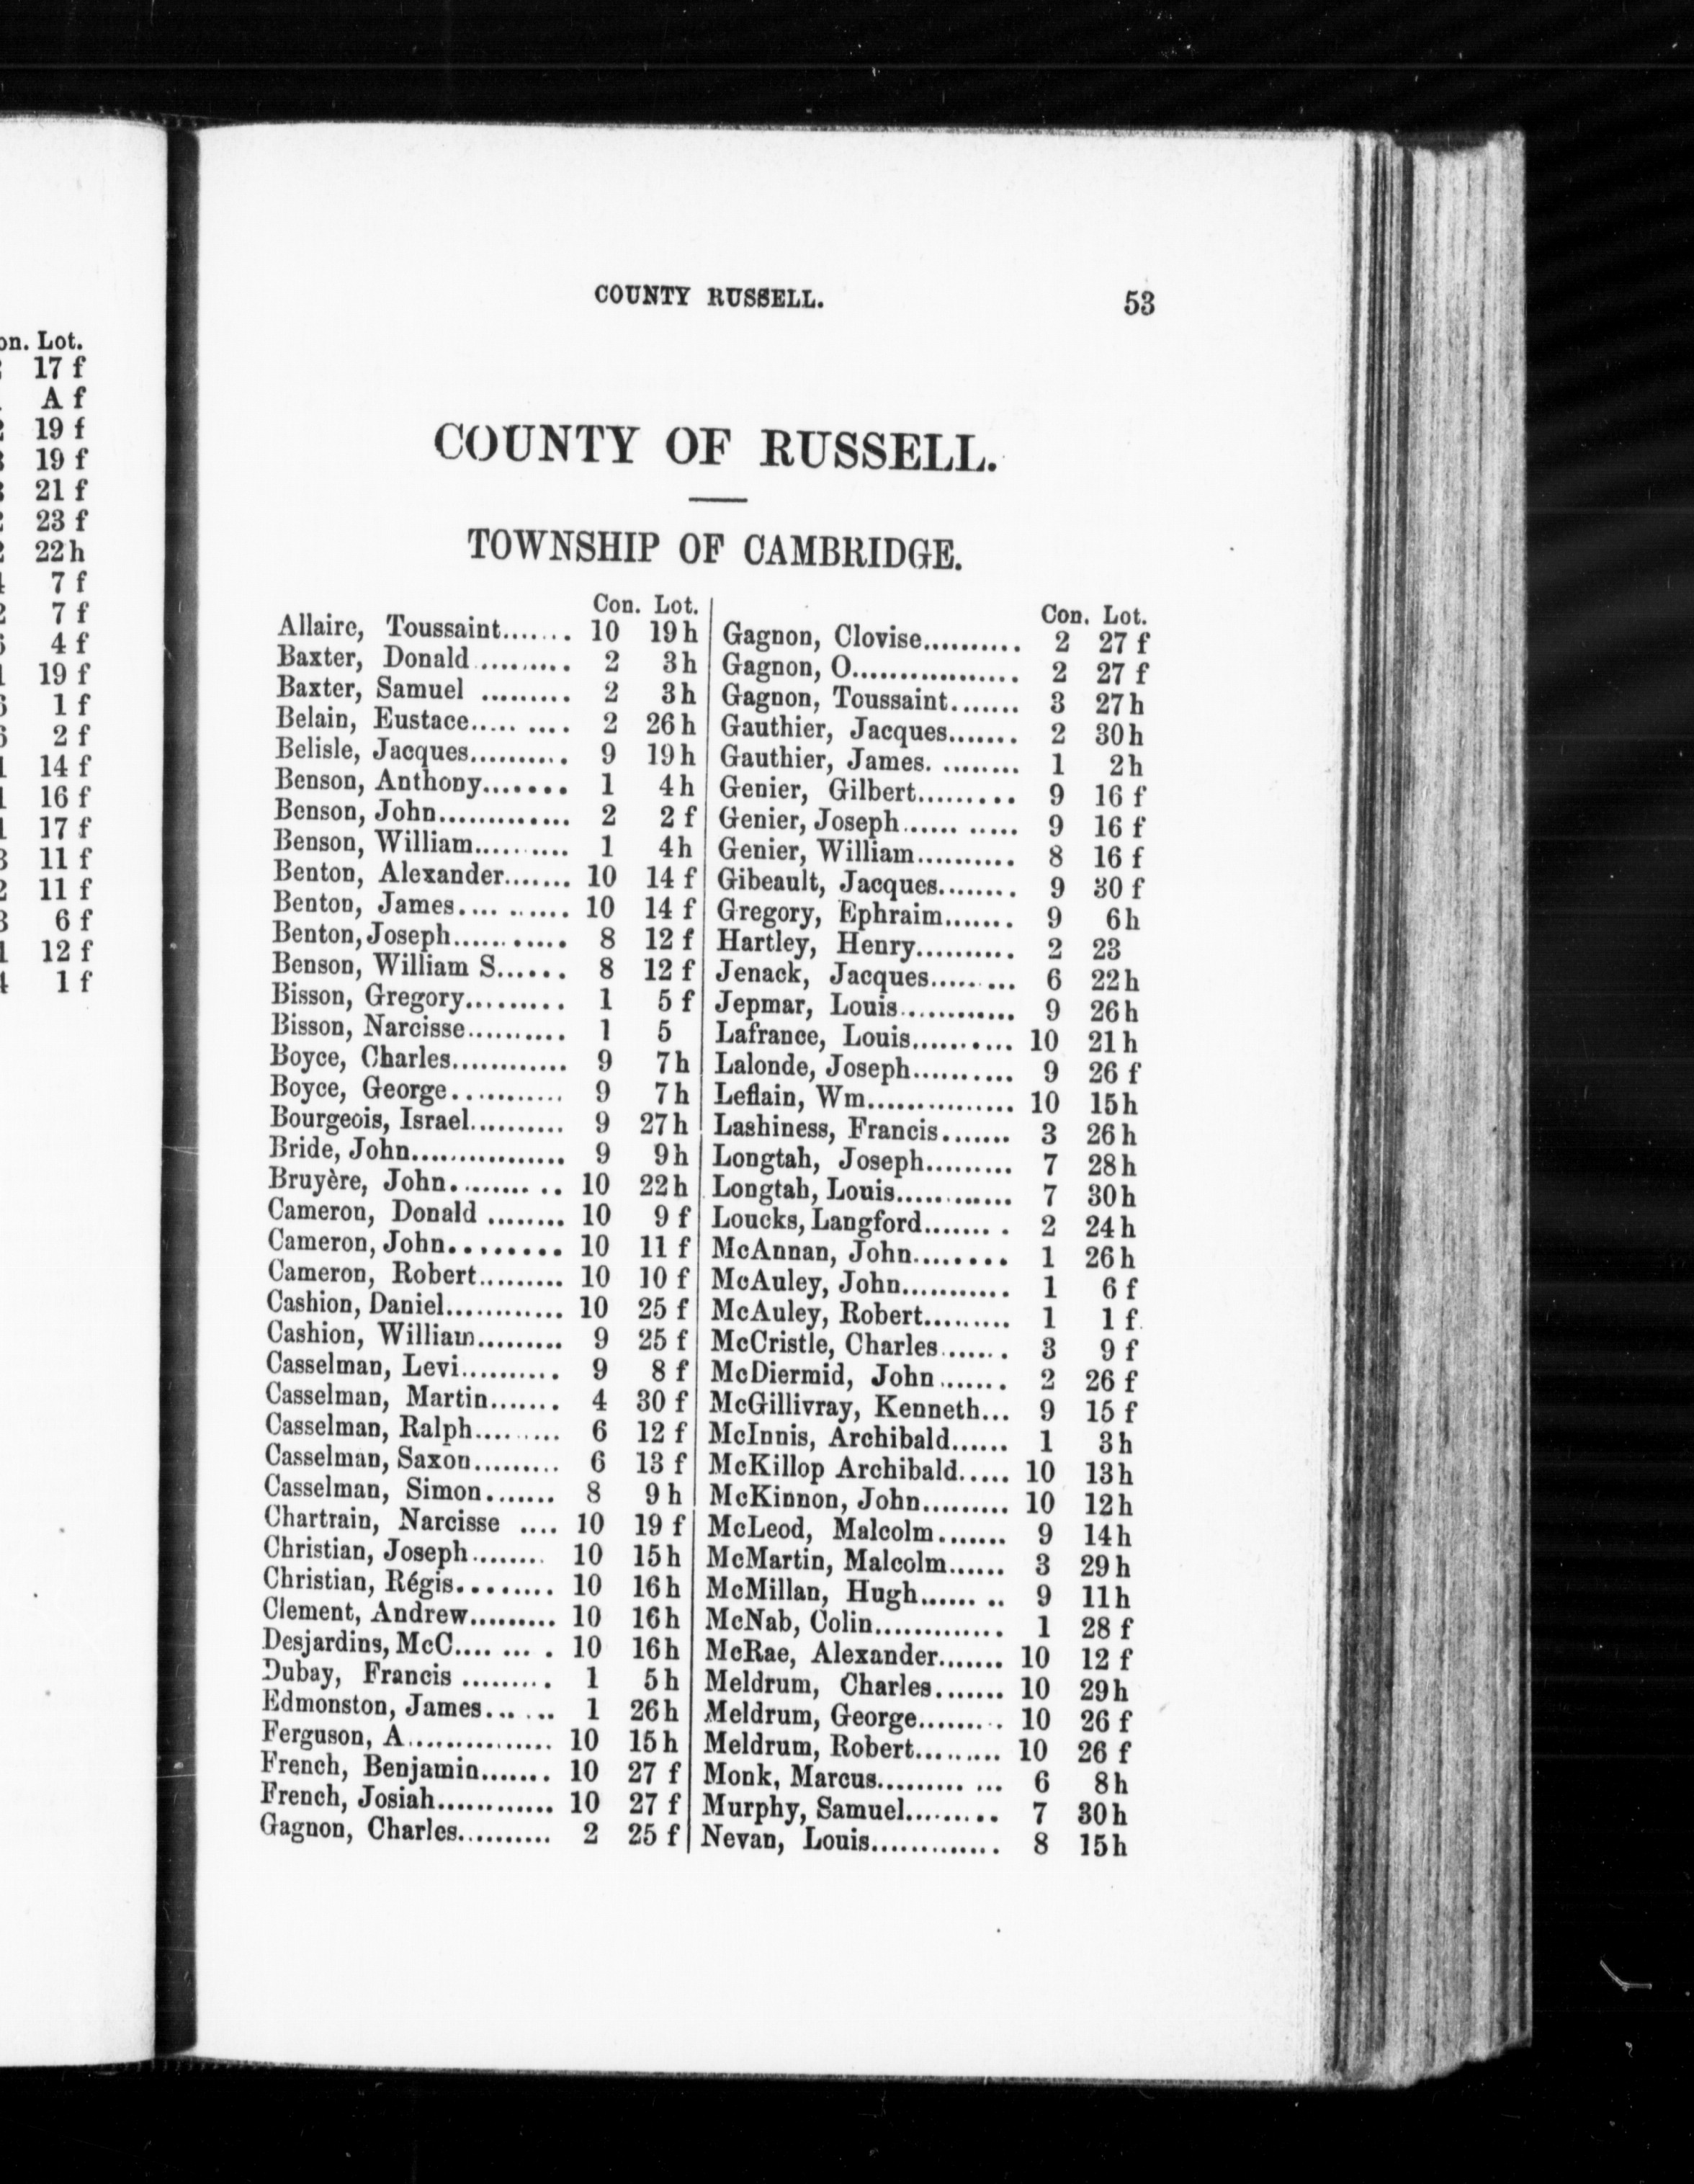 on. Lot.
17 f
A f
19 f
19 f
21 f
23 f
22 h
7 f
7 f
4 f
19 f
1 f
2 f
14 f
16 f
17 f
11 f
11 f
6 f
12 f
1 f
COUNTY RUSSELL. 53
COUNTY OF RUSSELL.
TOWNSHIP OF CAMBRIDGE.
Con. Lot.
Allaire, Toussaint....... 10 19 h
Baxter, Donald ......... 2 3 h
Baxter, Samuel ......... 2 3 h
Belain, Eustace..... .... 2 26 h
Belisle, Jacques.......... 9 19 h
Benson, Anthony....... 1 4 h
Benson, John............. 2 2 f
Benson, William.......... 1 4 h
Benton, Alexander....... 10 14 f
Benton, James.... ...... 10 14 f
Benton, Joseph........... 8 12 f
Benson, William S...... 8 12 f
Bisson, Gregory......... 1 5 f
Bisson, Narcisse.......... 1 5
Boyce, Charles............ 9 7 h
Boyce, George............ 9 7 h
Bourgeois, Israel.......... 9 27 h
Bride, John................ 9 9 h
Bruyère, John......... .. 10 22 h
Cameron, Donald ........ 10 9 f
Cameron, John......... 10 11 f
Cameron, Robert......... 10 10 f
Cashion, Daniel............ 10 25 f
Cashion, William......... 9 25 f
Casselman, Levi.......... 9 8 f
Casselman, Martin....... 4 30 f
Casselman, Ralph......... 6 12 f
Casselman, Saxon......... 6 13 f
Casselman, Simon....... 8 9 h
Chartrain, Narcisse .... 10 19 f
Christian, Joseph........ 10 15 h
Christian, Régis......... 10 16 h
Clement, Andrew......... 10 16 h
Desjardins, McC.... ... . 10 16 h
Dubay, Francis ......... 1 5 h
Edmonston, James... ... 1 26 h
Ferguson, A............... 10 15 h
French, Benjamin....... 10 27 f
French, Josiah............ 10 27 f
Gagnon, Charles.......... 2 25 f
Con. Lot.
Gagnon, Clovise.......... 2 27 f
Gagnon, O................. 2 27 f
Gagnon, Toussaint....... 3 27 h
Gauthier, Jacques....... 2 30 h
Gauthier, James. ........ 1 2 h
Genier, Gilbert......... 9 16 f
Genier, Joseph...... ..... 9 16 f
Genier, William.......... 8 16 f
Gibeault, Jacques........ 9 30 f
Gregory, Ephraim....... 9 6 h
Hartley, Henry.......... 2 23
Jenack, Jacques..... ... 6 22 h
Jepmar, Louis............ 9 26 h
Lafrance, Louis.......... 10 21 h
Lalonde, Joseph.......... 9 26 f
Leflain, Wm............... 10 15 h
Lashiness, Francis....... 3 26 h
Longtah, Joseph......... 7 28 h
Longtah, Louis............ 7 30 h
Loucks, Langford....... . 2 24 h
McAnnan, John........ 1 26 h
McAuley, John........... 1 6 f
McAuley, Robert......... 1 1 f
McCristle, Charles...... . 3 9 f
McDiermid, John....... 2 26 f
McGillivray, Kenneth... 9 15 f
McInnis, Archibald...... 1 3 h
McKillop Archibald..... 10 13 h
McKinnon, John......... 10 12 h
McLeod, Malcolm....... 9 14 h
McMartin, Malcolm...... 3 29 h
McMillan, Hugh...... .. 9 11 h
McNab, Colin............. 1 28 f
McRae, Alexander....... 10 12 f
Meldrum, Charles....... 10 29 h
Meldrum, George......... 10 26 f
Meldrum, Robert......... 10 26 f
Monk, Marcus......... ... 6 8 h
Murphy, Samuel......... 7 30 h
Nevan, Louis............. 8 15 h